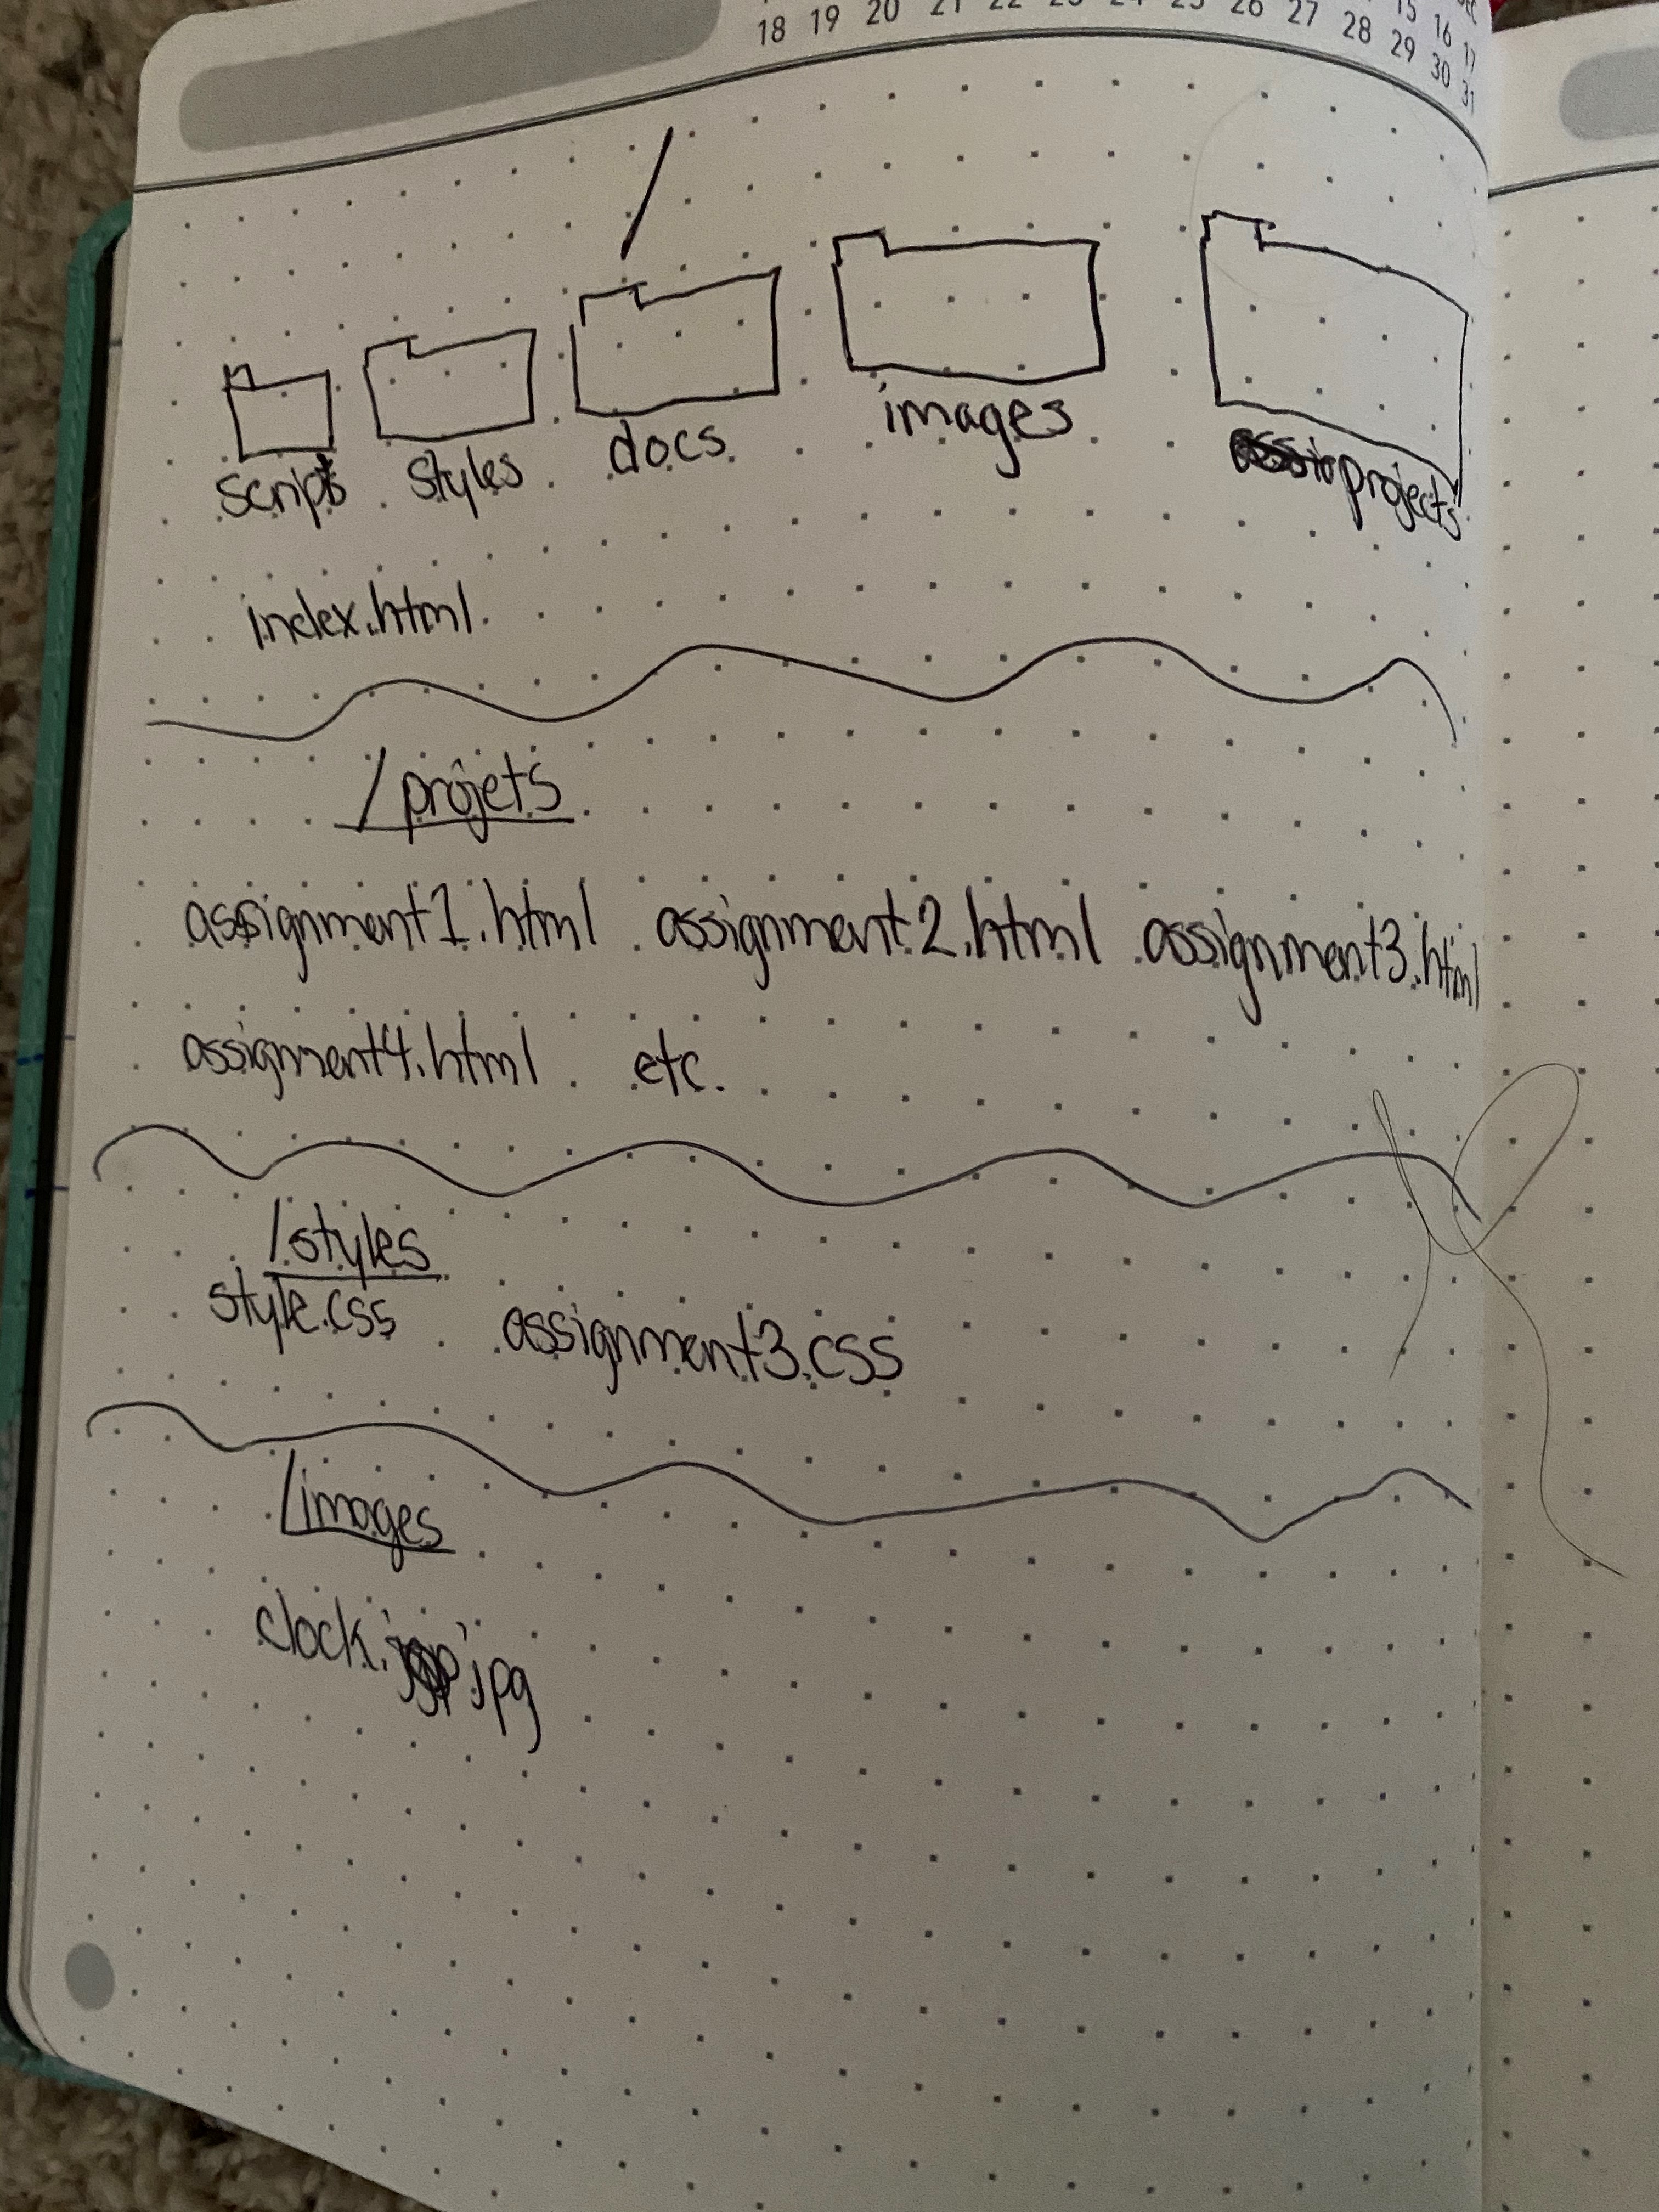 18 19 20 21 22 23 24 25 26 27 28 29 30 31
15 16 17
/
scripts styles docs images projects
index.html
/projets
assignment1.html assignment2.html assignment3.html
assignment4.html etc.
/styles
style.css assignment3.css
/images
clock.jpg